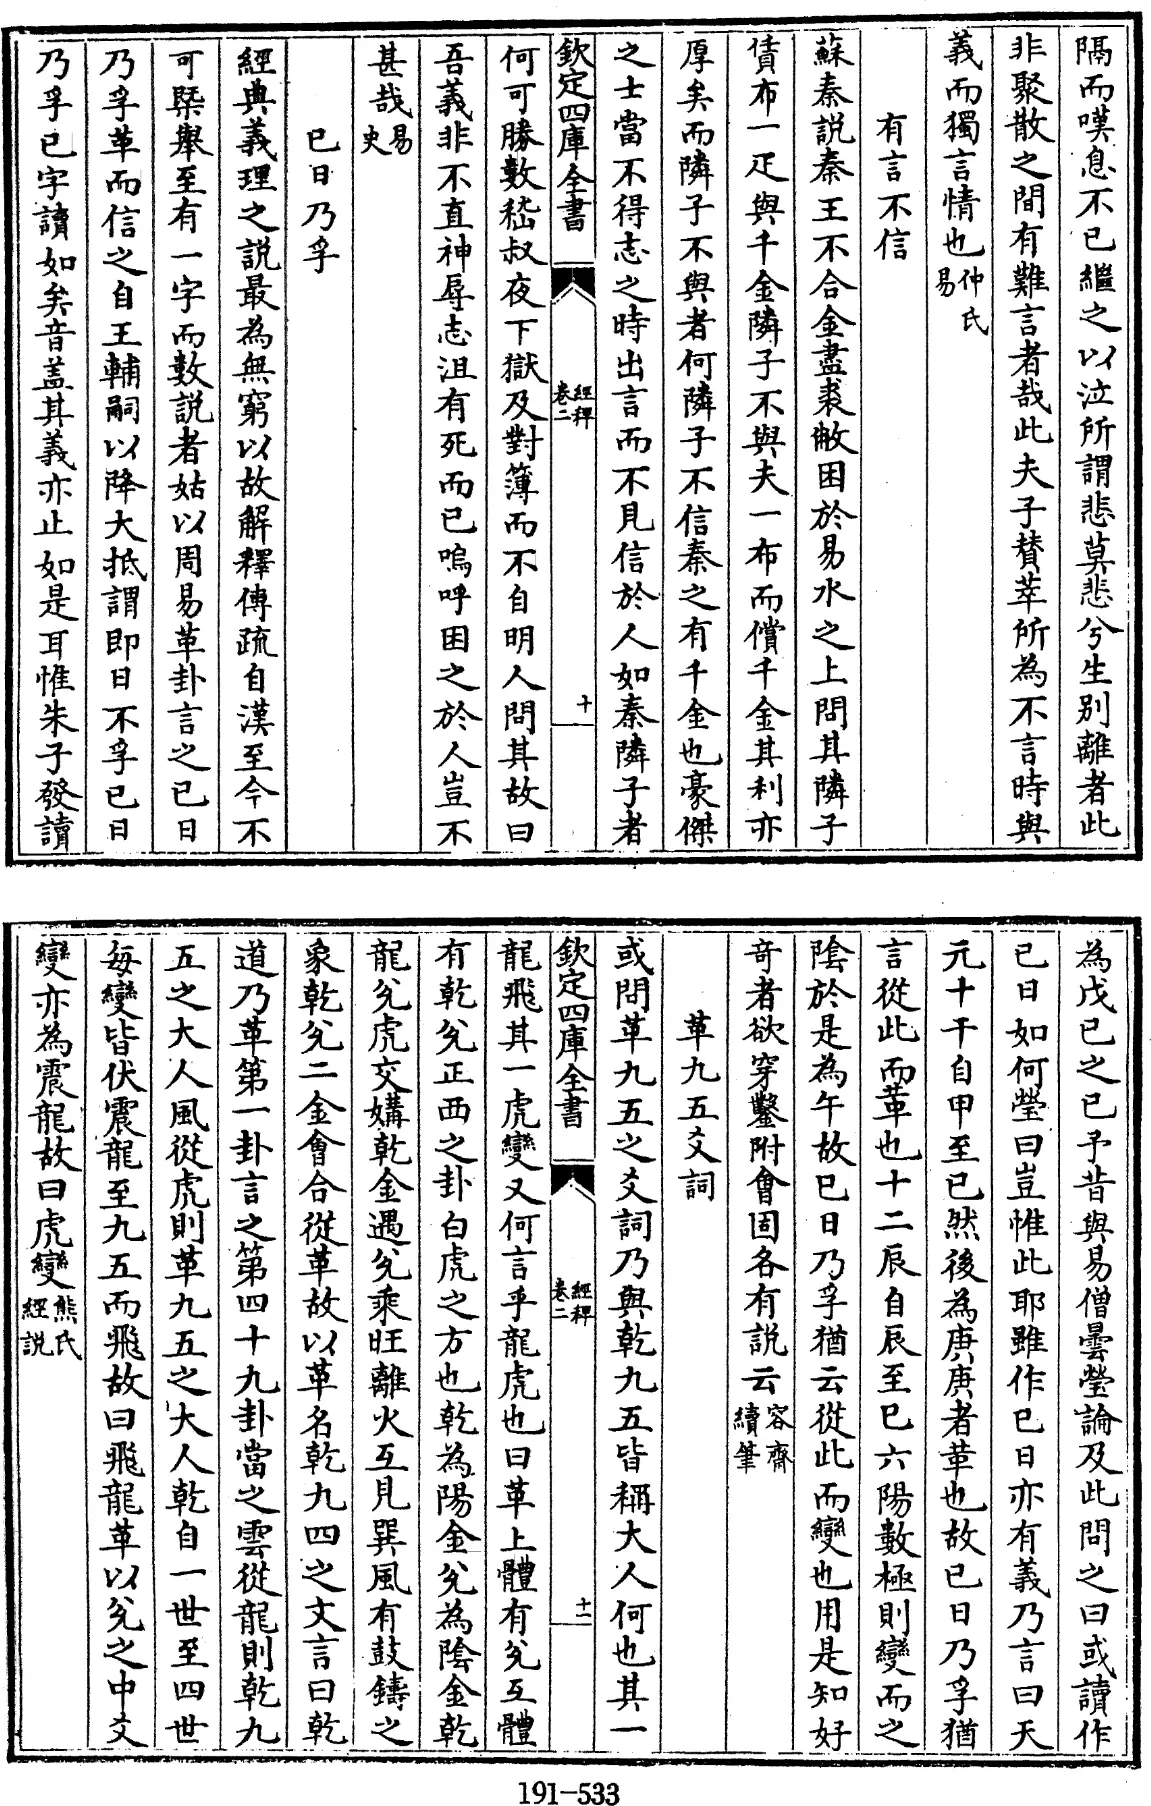 隔而嘆息不已繼之以泣所謂悲莫悲兮生别離者此
非聚散之間有難言者哉此夫子賛萃所為不言時與
義而獨言情也仲氏易
有言不信
蘇秦説秦王不合金盡裘敝困於易水之上問其隣子
賃布一疋與千金隣子不與夫一布而償千金其利亦
厚矣而隣子不與者何隣子不信秦之有千金也豪傑
之士當不得志之時出言而不見信於人如秦隣子者
欽定四庫全書 經稗卷二 十
何可勝數嵇叔夜下獄及對簿而不自明人問其故曰
吾義非不直神辱志沮有死而已嗚呼困之於人豈不
甚哉易史
已日乃孚
經典義理之説最為無窮以故解釋傳疏自漢至今不
可槩舉至有一字而數説者姑以周易革卦言之已日
乃孚革而信之自王輔嗣以降大抵謂即日不孚已日
乃孚已字讀如矣音盖其義亦止如是耳惟朱子發讀
為戊已之已予昔與易僧曇瑩論及此問之曰或讀作
已日如何瑩曰豈惟此耶雖作巳日亦有義乃言曰天
元十干自甲至已然後為庚庚者革也故已日乃孚猶
言從此而革也十二辰自辰至巳六陽數極則變而之
陰於是為午故巳日乃孚猶云從此而變也用是知好
竒者欲穿鑿附㑹固各有説云容齋續筆
革九五爻詞
或問革九五之爻詞乃與乾九五皆稱大人何也其一
欽定四庫全書 經稗卷二 十一
龍飛其一虎變又何言乎龍虎也曰革上體有兊互體
有乾兊正西之卦白虎之方也乾為陽金兊為陰金乾
龍兊虎交媾乾金遇兊乘旺離火互見巽風有鼓鑄之
象乾兊二金會合從革故以革名乾九四之文言曰乾
道乃革第一卦言之第四十九卦當之雲從龍則乾九
五之大人風從虎則革九五之大人乾自一世至四世
每變皆伏震龍至九五而飛故曰飛龍革以兊之中爻
變亦為震龍故曰虎變熊氏經説
191-533